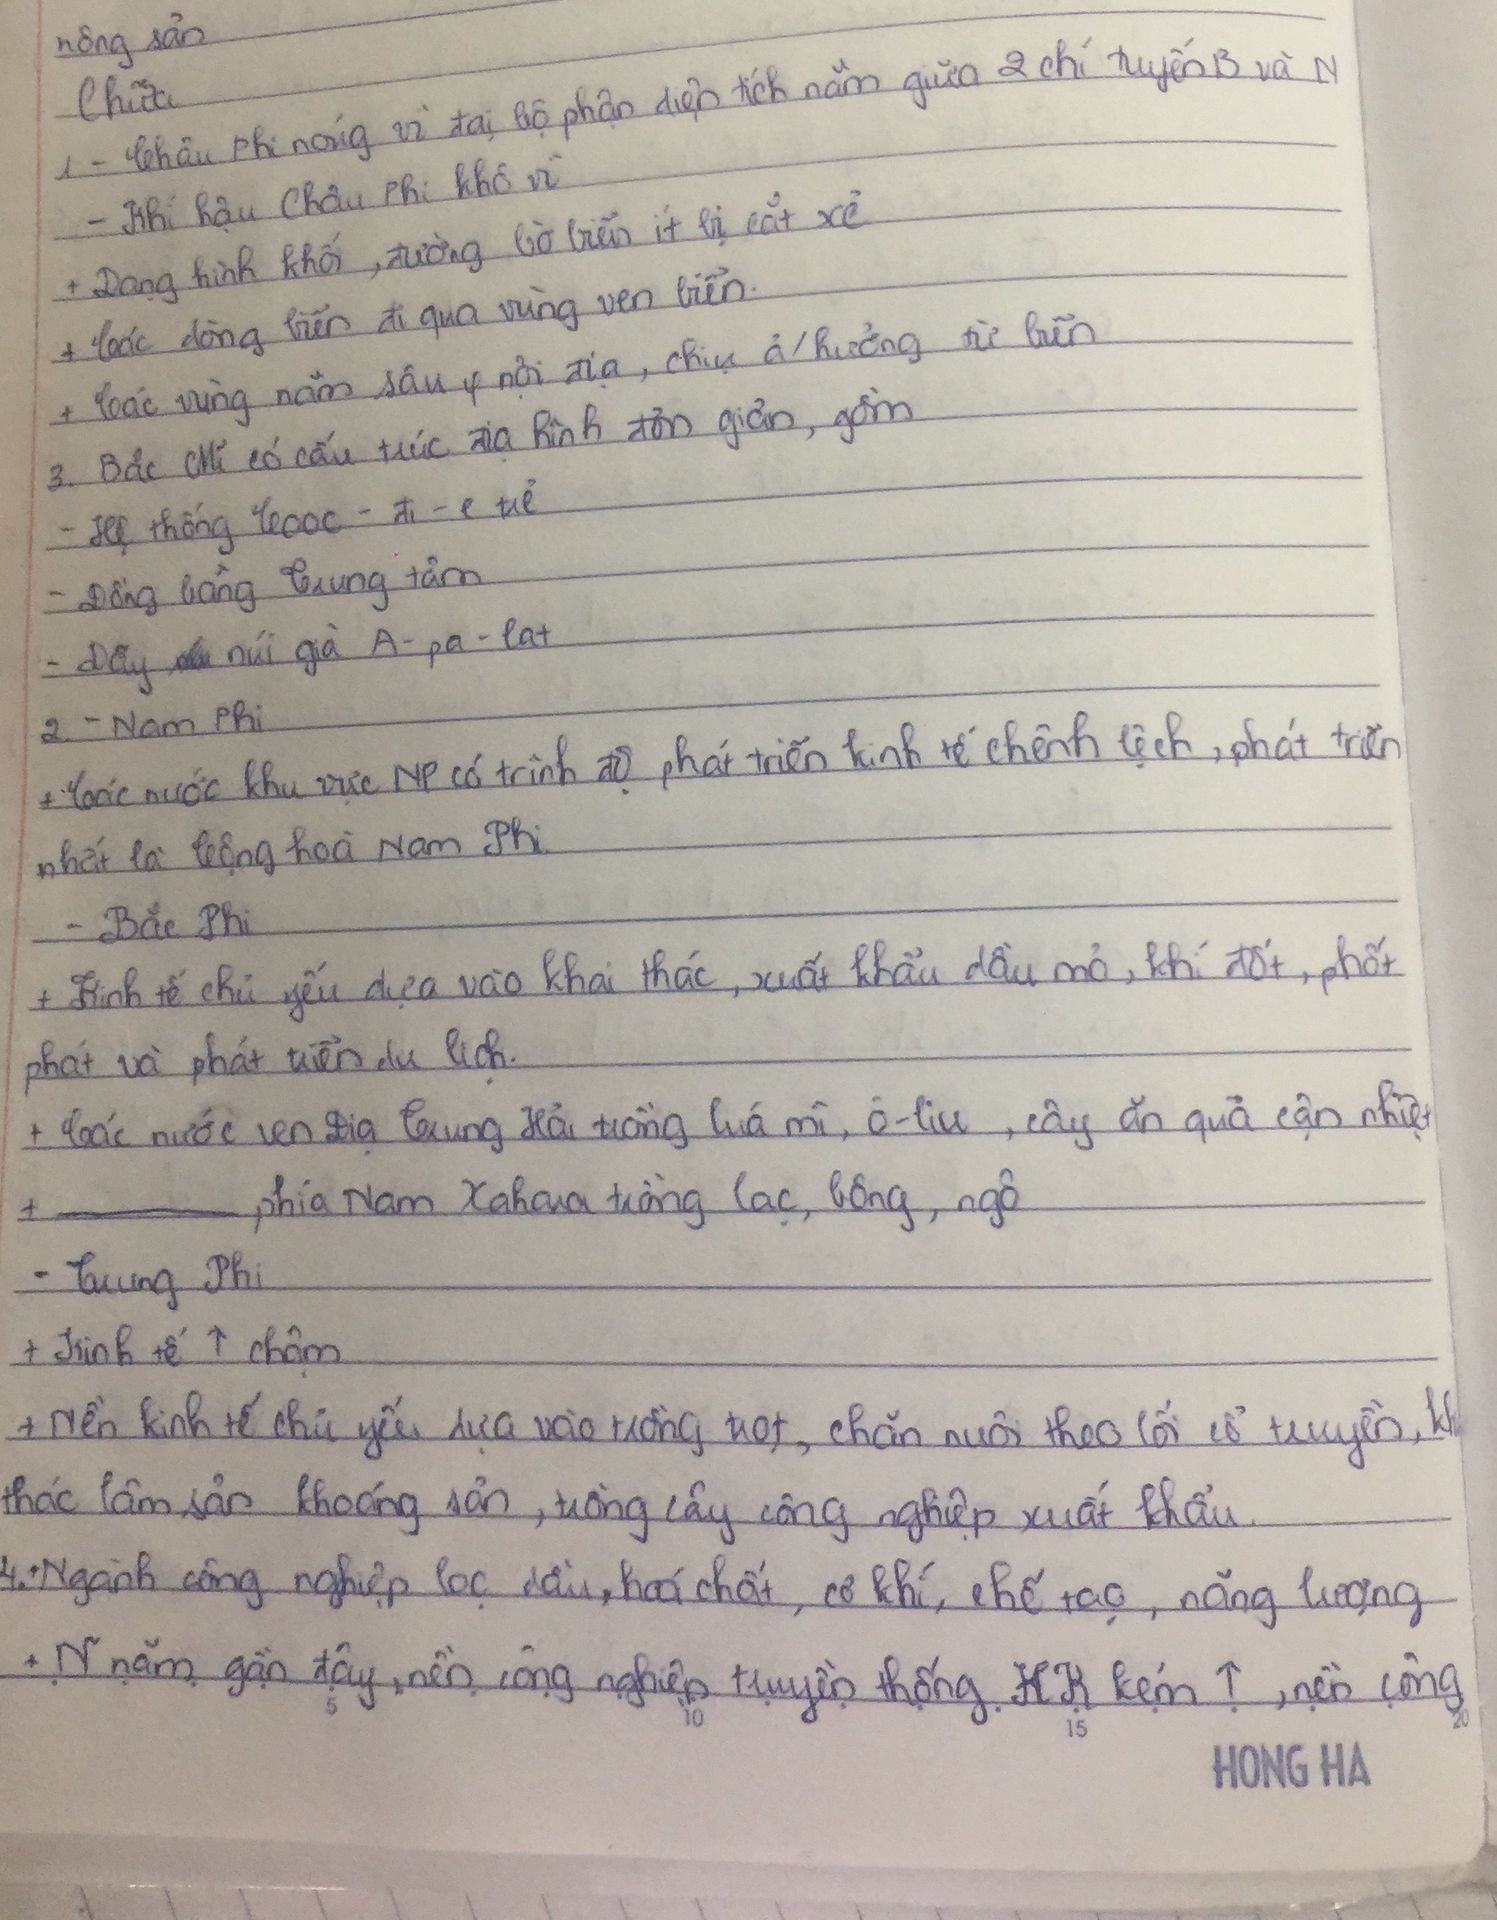 nông sản
Chữa
1 - Châu Phi nóng vì đại bộ phận diện tích nằm giữa 2 chí tuyến B và N
- Khí hậu Châu Phi khô vì
+ Dạng hình khối, đường bờ biển ít bị cắt xẻ
+ Các dòng biển đi qua vùng ven biển.
+ Các vùng nằm sâu nội địa, chịu ả/hưởng từ biển
3. Bắc Mĩ có cấu trúc địa hình đơn giản, gồm
- Hệ thống Cooc - đi - e trẻ
- Đồng bằng Trung tâm
- Dãy núi già A - pa - lat
2 - Nam Phi
+ Các nước khu vực NP có trình độ phát triển kinh tế chênh lệch, phát triển
nhất là Cộng hoà Nam Phi
- Bắc Phi
+ Kinh tế chủ yếu dựa vào khai thác, xuất khẩu dầu mỏ, khí đốt, phốt
phát và phát triển du lịch.
+ Các nước ven Địa Trung Hải trồng luá mì, ô-liu, cây ăn quả cận nhiệt
+ ———— phía Nam Xahara trồng lạc, bông, ngô
- Trung Phi
+ Kinh tế ↑ chậm
+ Nền kinh tế chủ yếu dựa vào trồng trọt, chăn nuôi theo lối cổ truyền, kh
thác lâm sản khoáng sản, trồng cây công nghiệp xuất khẩu.
4. + Ngành công nghiệp lọc dầu, hoá chất, cơ khí, chế tạo, năng lượng
+ N~ năm gần đây, nền công nghiệp truyền thống HK kém ↑, nền công
5 10 15 20
HONG HA